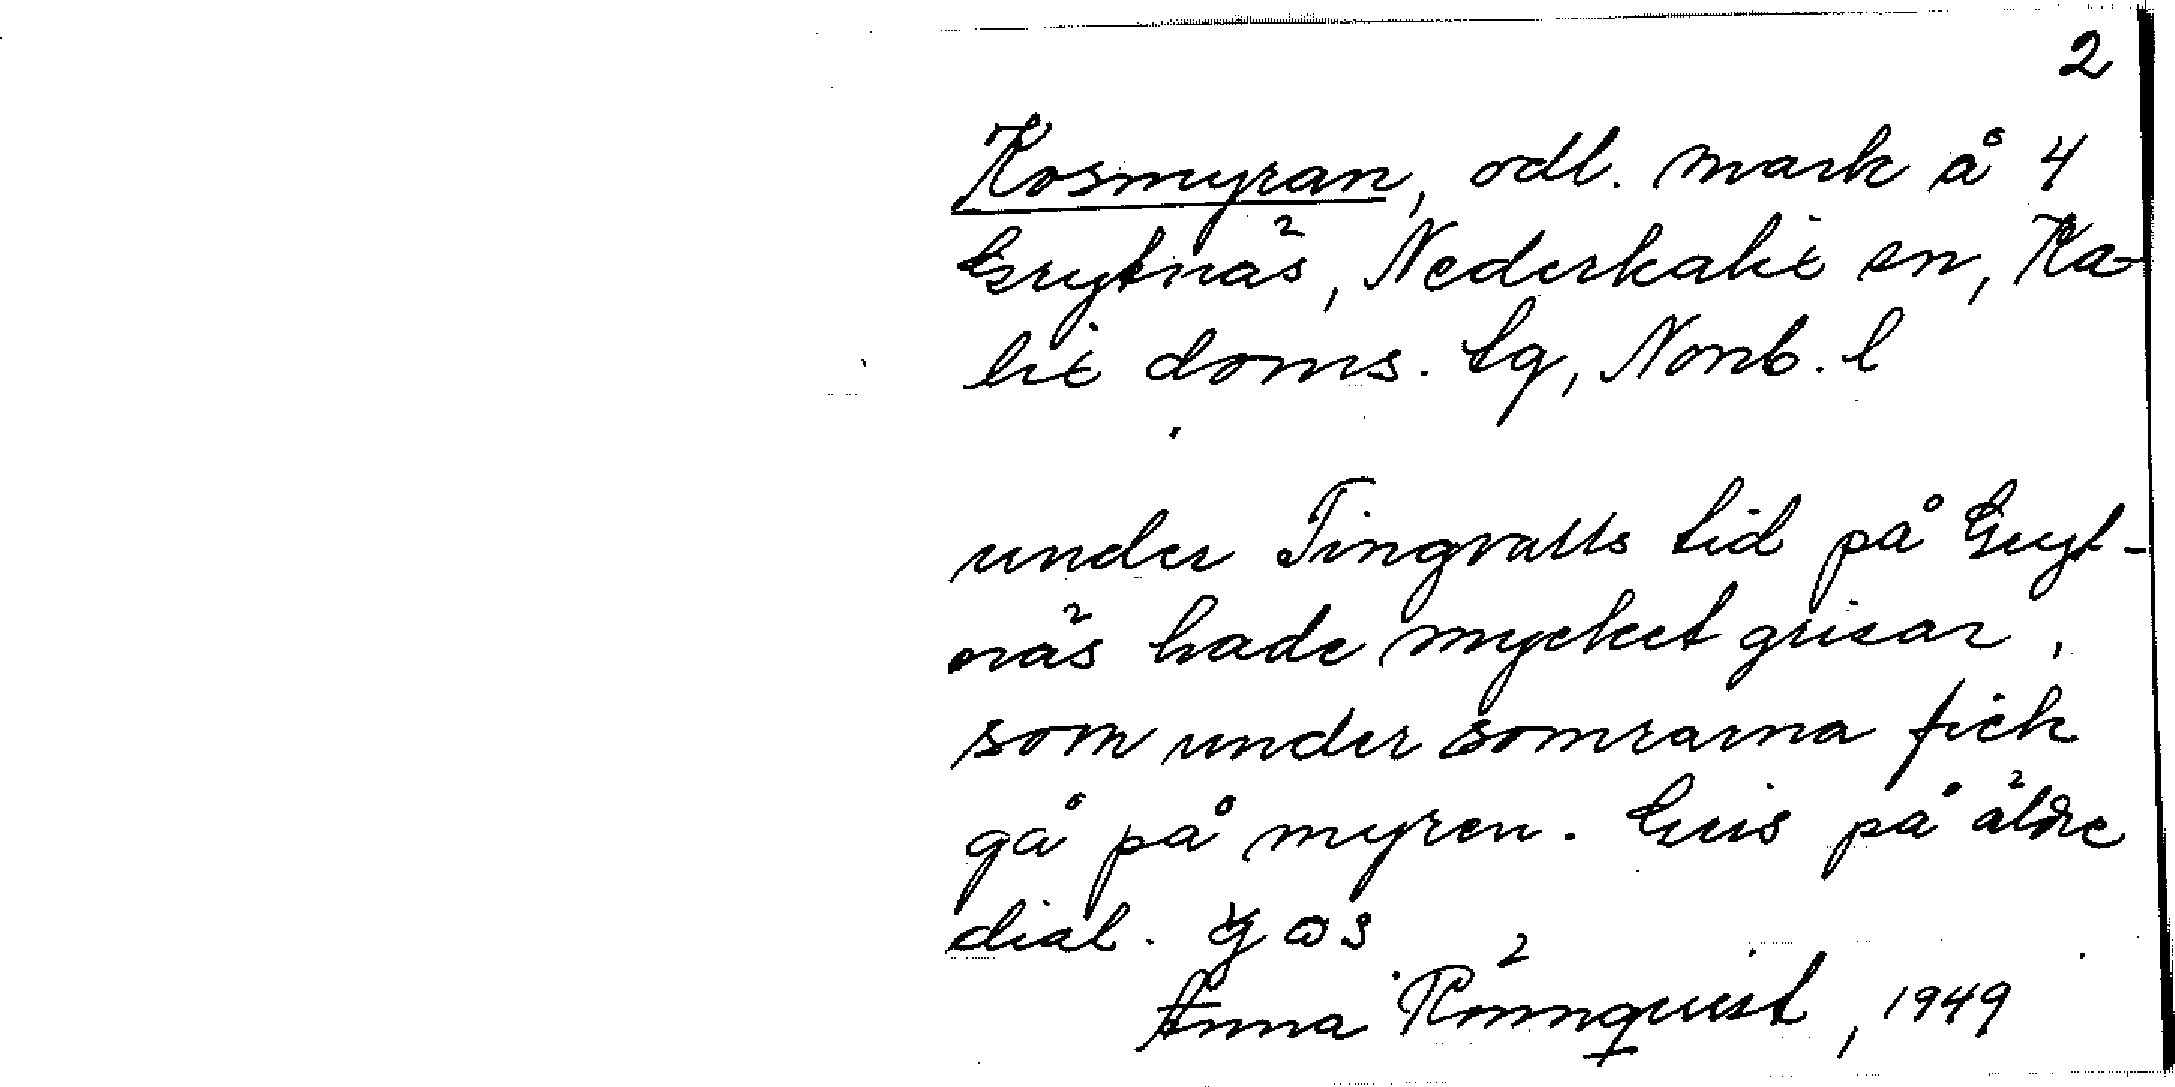 2
Kosmyran, odl. mark å 4
Grytnäs, Nederkalix sn, Ka-
lix doms. tg, Norrb. l
under Tingvalls tid på Gryt-
näs hade mycket grisar,
som under somrarna fick
gå på myren. Gris på äldre
dial.
Anna Rönnquist, 1949